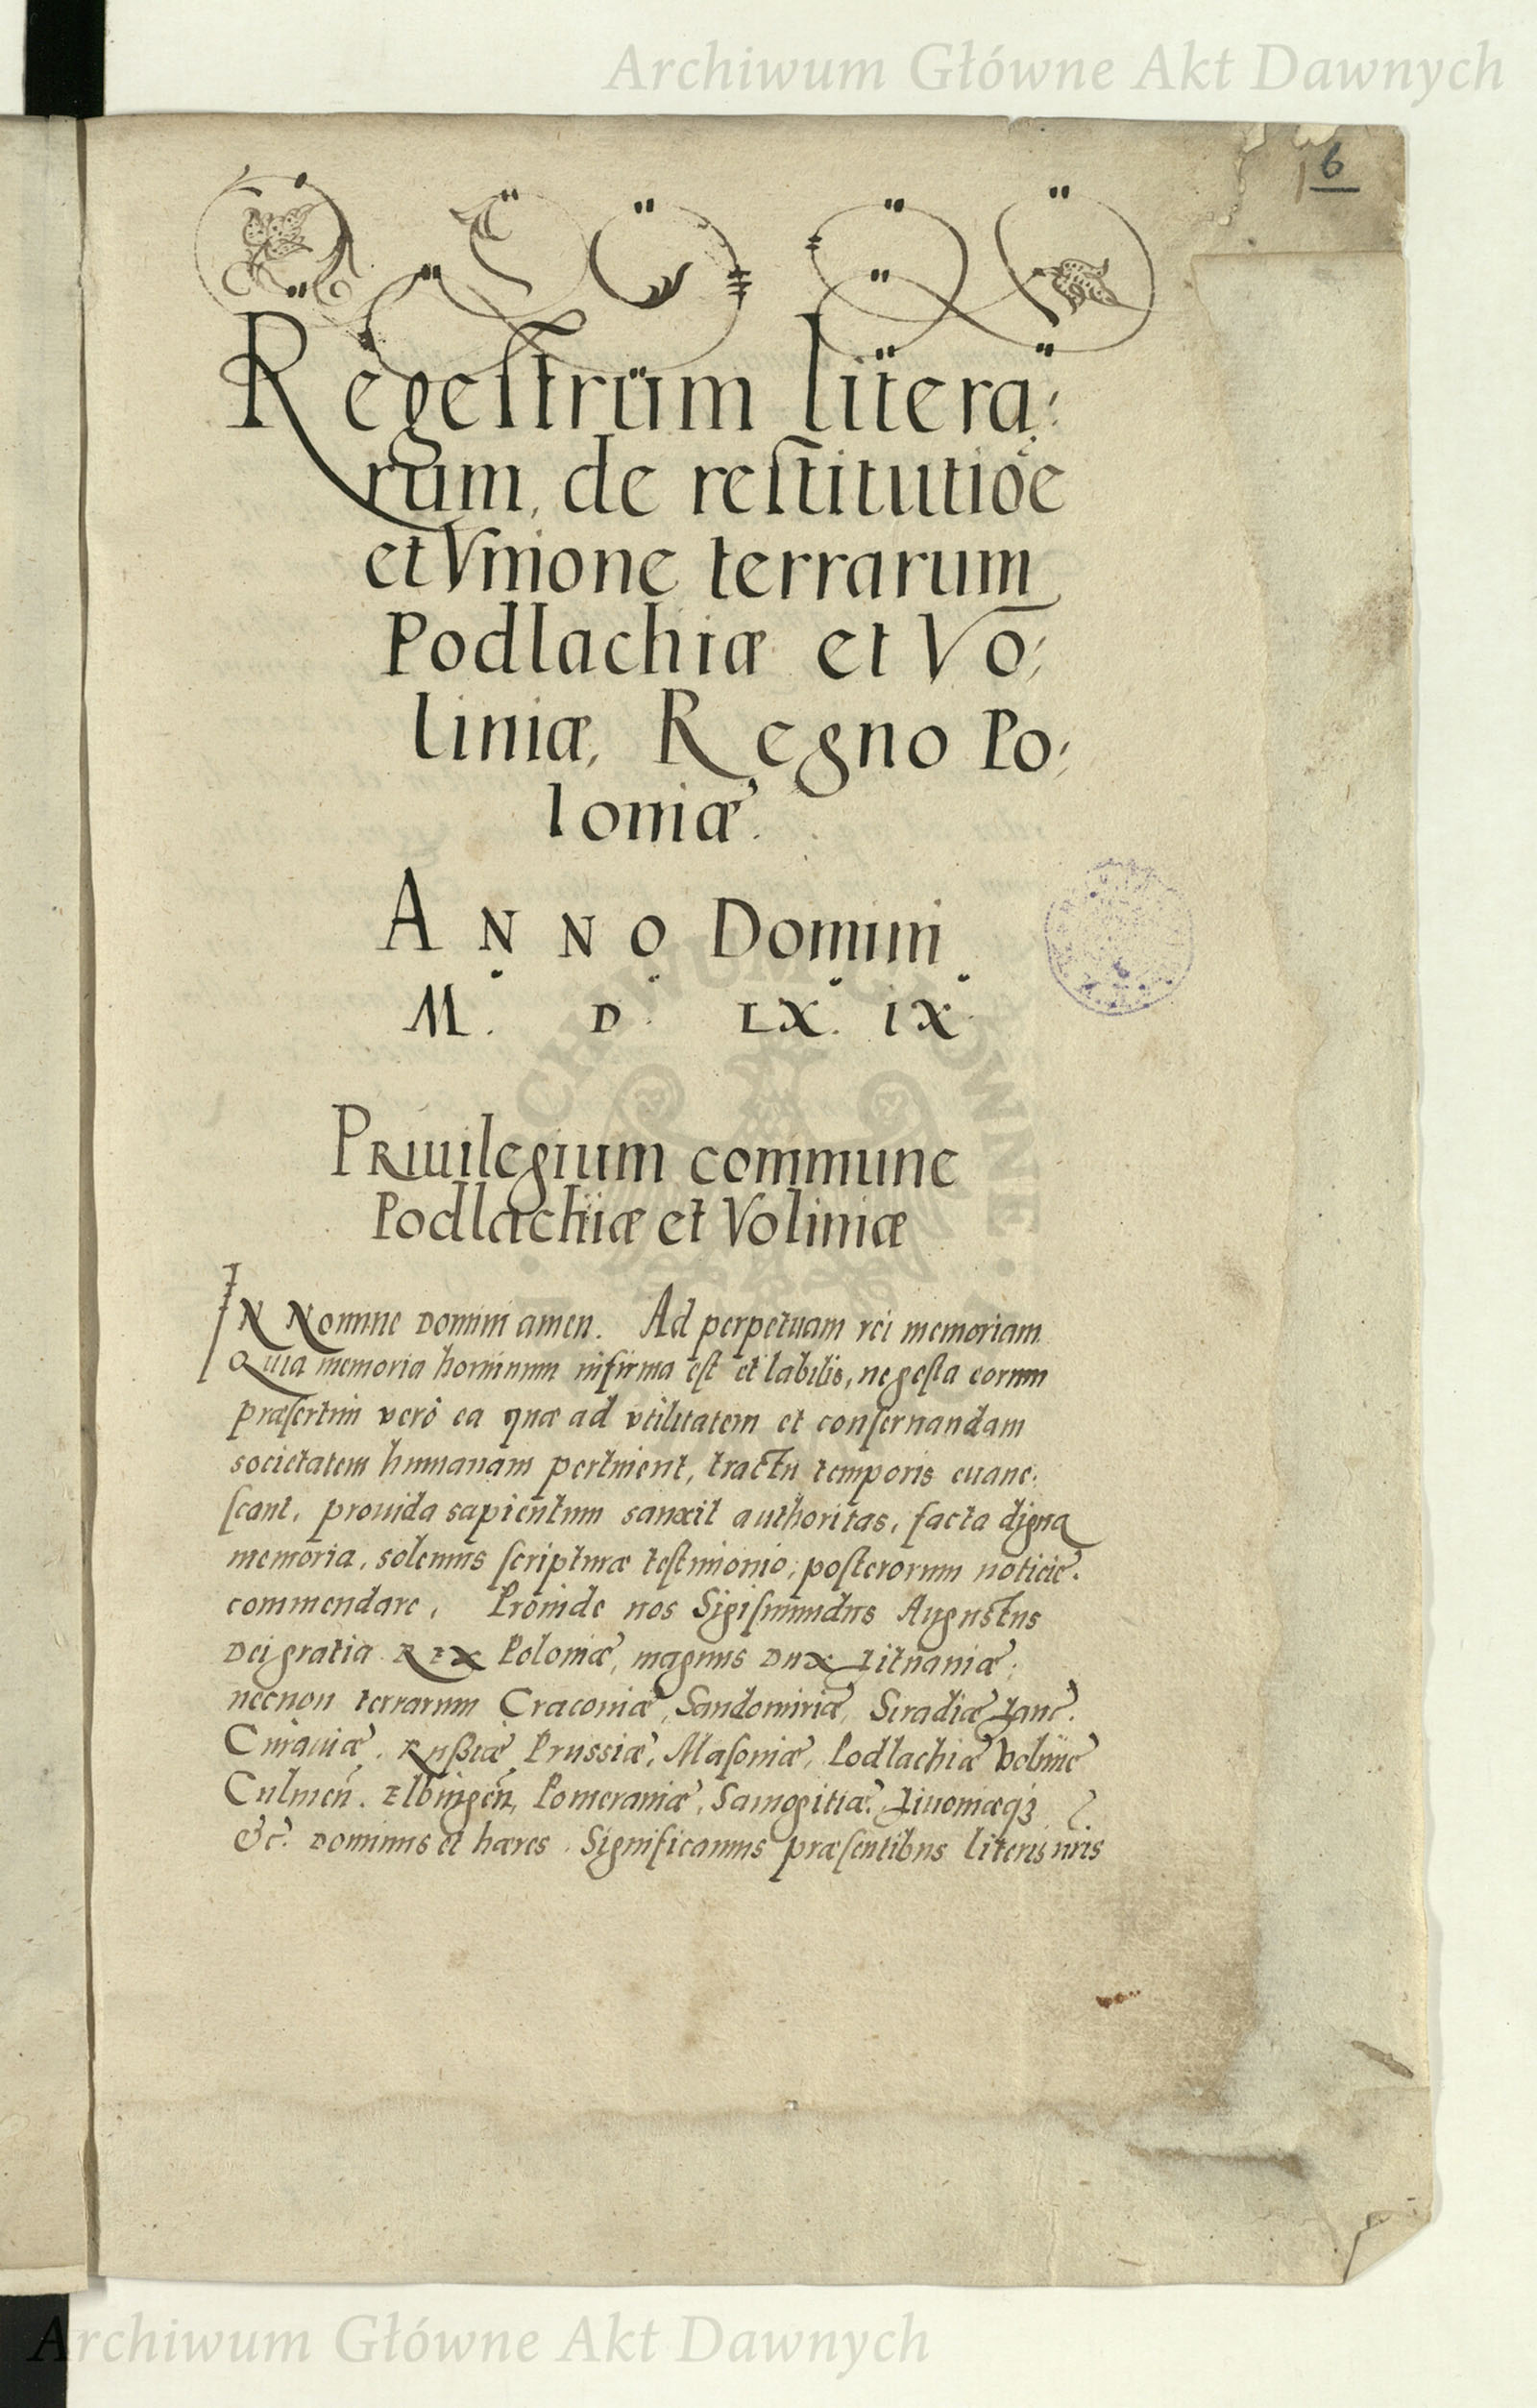 Archiwum Główne Akt Dawnych
6
Regeſtrum litera:
rum, de reſtitutiōe
et Vnione terrarum
Podlachiæ et Vo:
liniæ, Regno Po:
loniæ.
ANNO Domini
M. D. LX. IX.
Priuilegium commune
Podlachiæ et Voliniæ
IN Nomine Domini amen. Ad perpetuam rei memoriam
Quia memoria hominum infirma est et labilis, ne gesta eorum
præſertim verò ea quæ ad vtilitatem et conſeruandam
societatem humanam pertinent, tractu temporis euane:
ſcant, prouida sapientum sanxit authoritas, facta digna
memoria, solemnis ſcripturæ teſtimonio, poſterorum noticiæ
commendare, Proinde nos Sigiſmundus Augustus
Dei gratia REX Poloniæ, magnus Dux Lituaniæ,
necnon terrarum Craconiæ, Sandomiriæ, Siradiæ Lanc.
Cuiauiæ, Rußiæ, Prussiæ, Maſoniæ, Podlachiæ Voliniæ
Culmen̄. Elbingen̄, Pomeraniæ, Samogitiæ, Liuoniæqꝫ
&c. Dominus et hæres. Significamus præſentibus literis nr̄is
Archiwum Główne Akt Dawnych